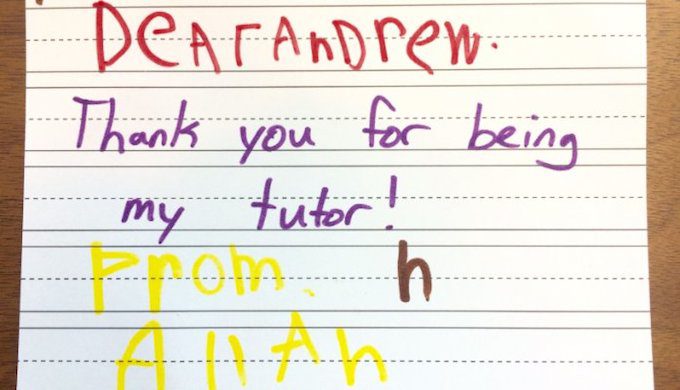 DeArAnDrew.
Thank you for being
my tutor!
From. h
AllAn